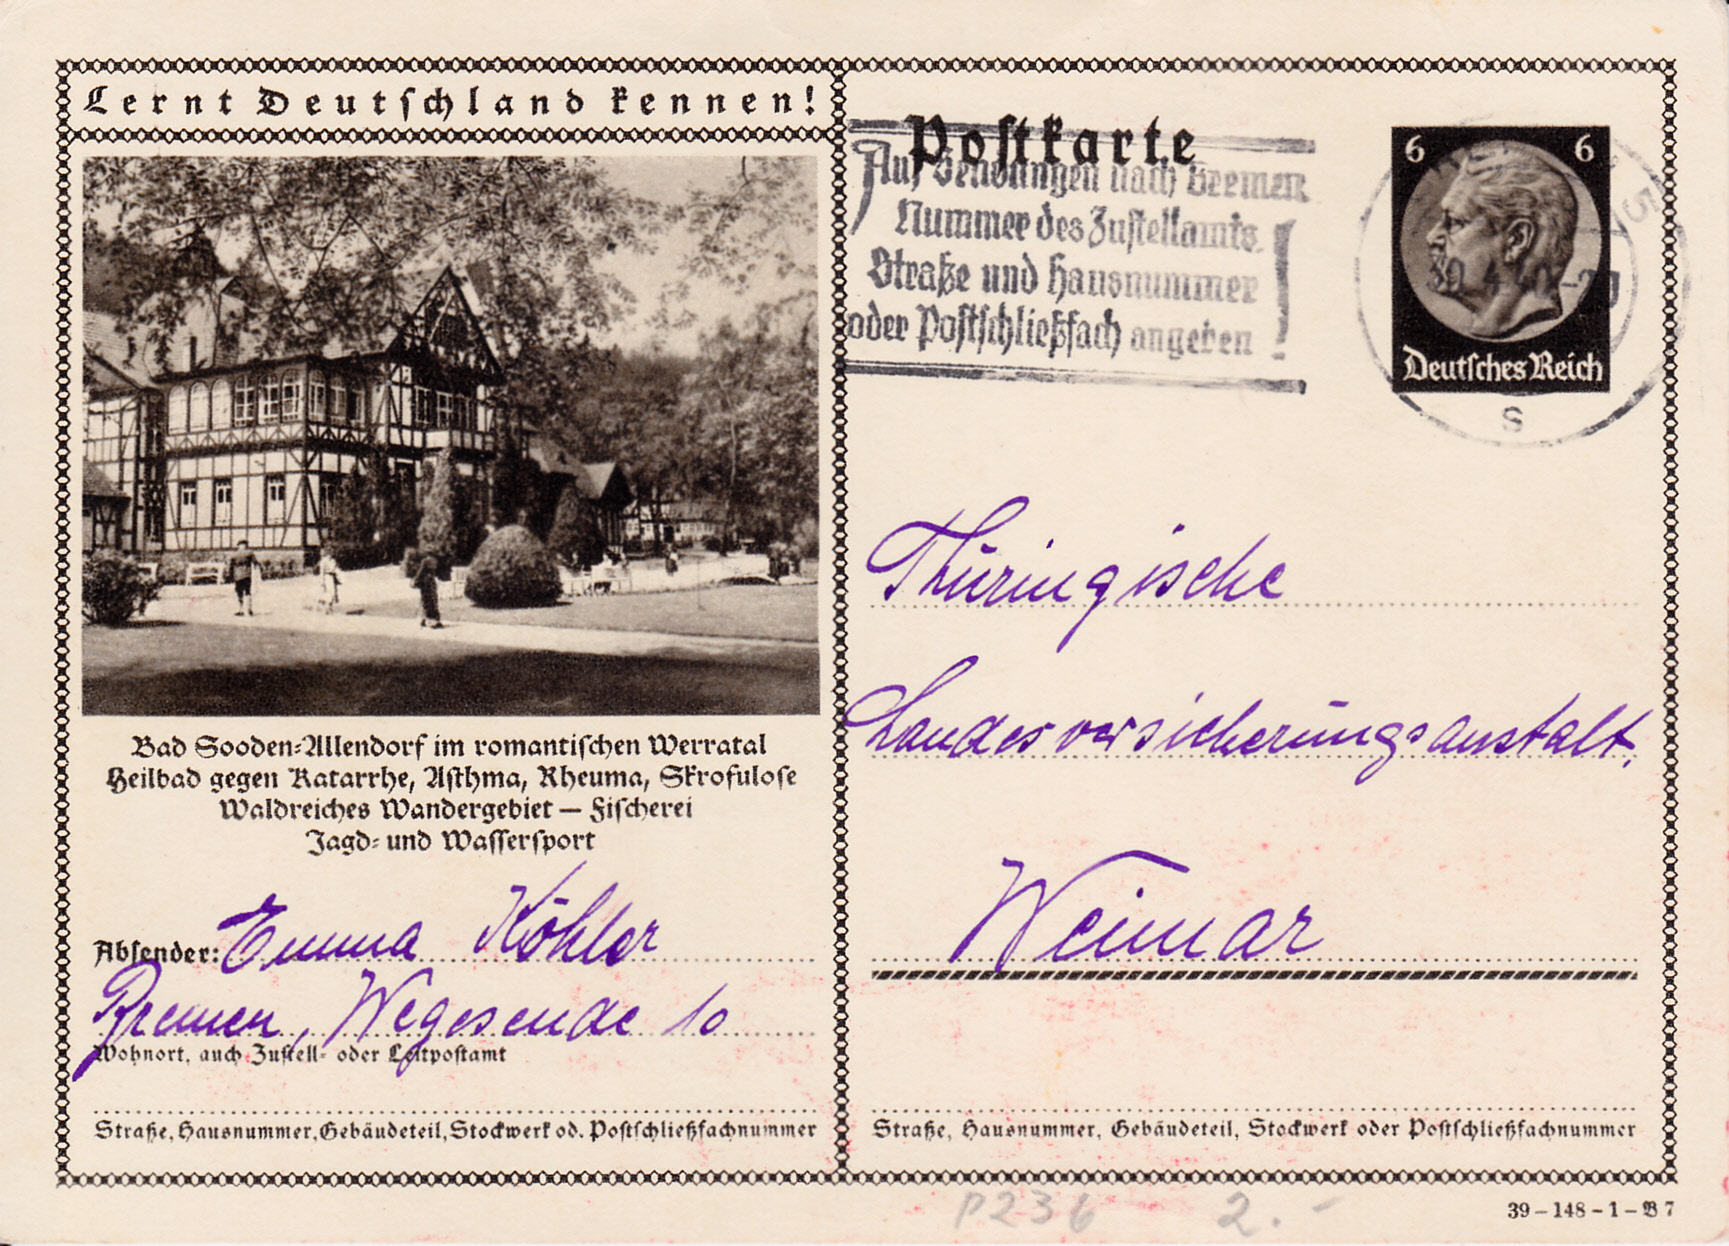 Lernt Deutschland kennen!
Bad Sooden-Allendorf im romantischen Werratal
Heilbad gegen Katarrhe, Asthma, Rheuma, Skrofulose
Waldreiches Wandergebiet — Fischerei
Jagd- und Wassersport
Absender: Emma Köhler
Bremen, Wegesende 10
Wohnort, auch Zustell- oder Leitpostamt
Straße, Hausnummer, Gebäudeteil, Stockwerk od. Postschließfachnummer
Postkarte
Auf Sendungen nach Bremen
Nummer des Zustellamts
Straße und Hausnummer
oder Postschließfach angeben!
6 6
Deutsches Reich
5
30.4.
s
Thüringische
Landesversicherungsanstalt,
Weimar
Straße, Hausnummer, Gebäudeteil, Stockwerk oder Postschließfachnummer
P236 2.-
39-148-1-B7